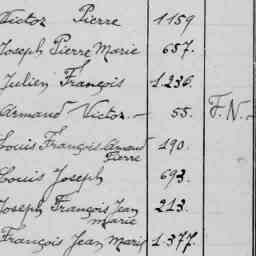 Victor Pierre 1159
Joseph Pierre Marie 657.
Julien François 1.236.
Armand Victor.- 55. F.N.-
Louis François Armand Pierre 190.
Louis Joseph 693.
Joseph François Jean Marie 213.
François Jean Marie 1.377.